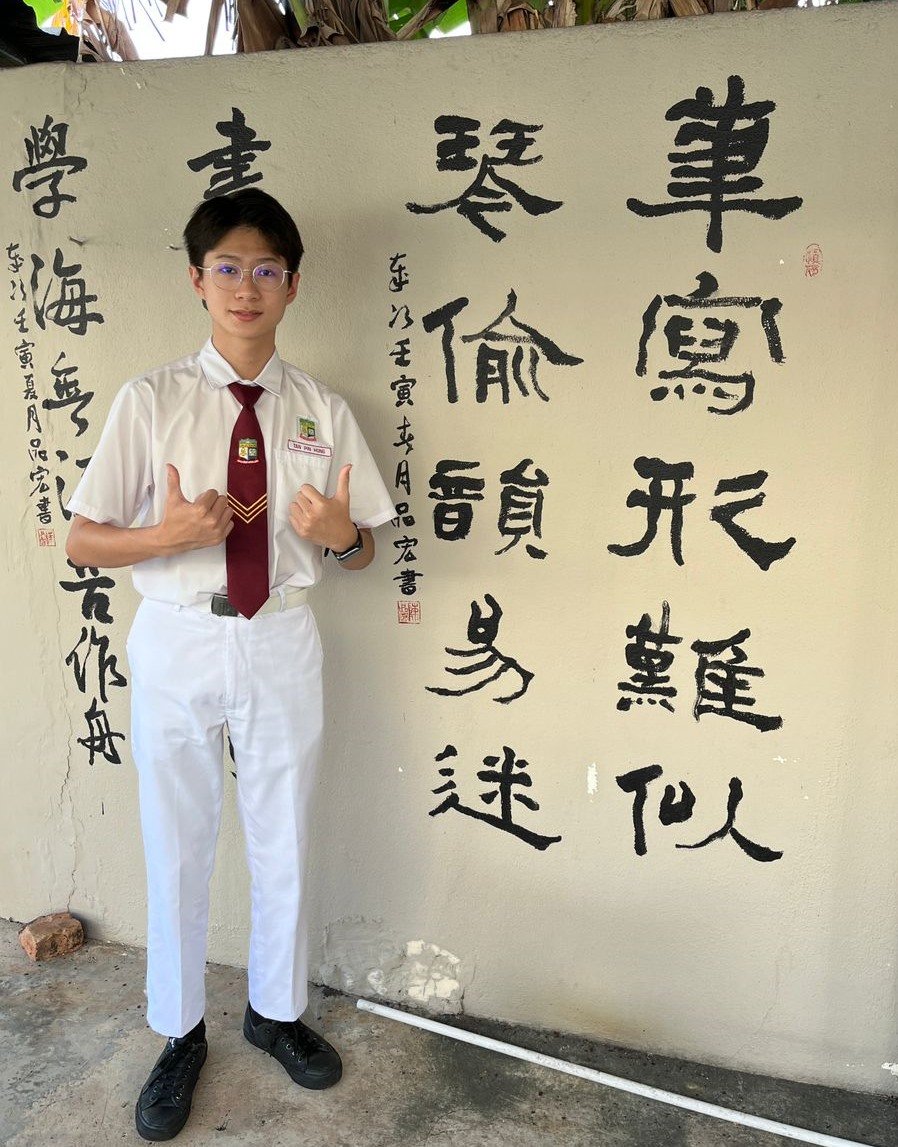 筆寫形難似
琴偷韻易迷
歲次壬寅春月品宏書
書
學海無苦作舟
歲次壬寅夏月品宏書
TAN PIN HONG